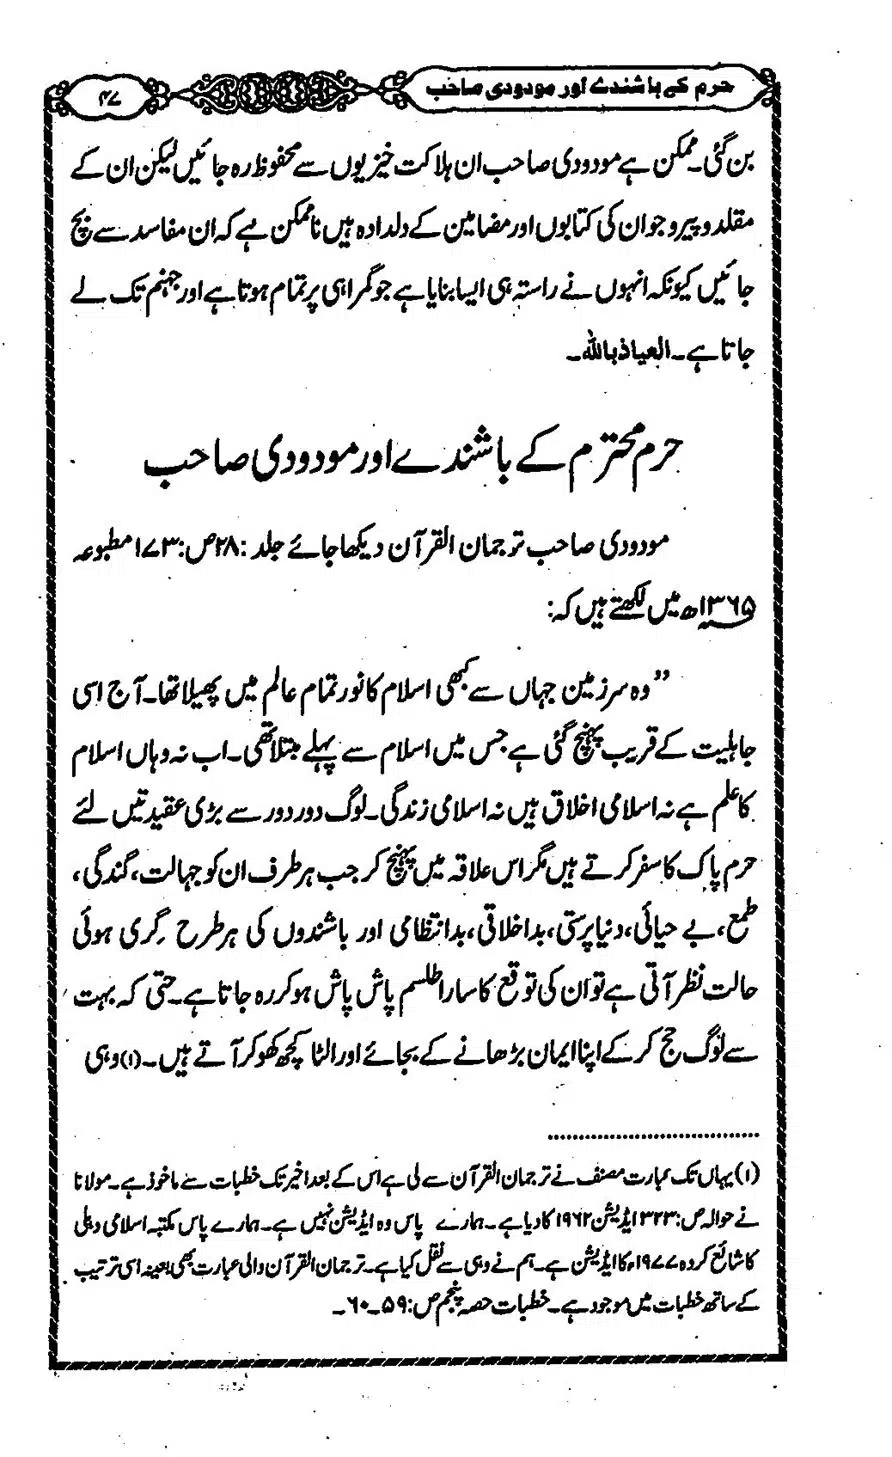 حرم کے باشندے اور مودودی صاحب
۴۷
بن گئی۔ ممکن ہے مودودی صاحب ان ہلاکت خیزیوں سے محفوظ رہ جائیں لیکن ان کے
مقلد و پیرو جو ان کی کتابوں اور مضامین کے دلدادہ ہیں ناممکن ہے کہ ان مفاسد سے بچ
جائیں کیونکہ انہوں نے راستہ ہی ایسا بنایا ہے جو گمراہی پر تمام ہوتا ہے اور جہنم تک لے
جاتا ہے۔ العیاذ باللہ۔
حرم محترم کے باشندے اور مودودی صاحب
مودودی صاحب ترجمان القرآن دیکھا جائے جلد :۲۸ص:۱۷۳ مطبوعہ
۱۳۶۵ھ میں لکھتے ہیں کہ:
”وہ سرزمین جہاں سے کبھی اسلام کا نور تمام عالم میں پھیلا تھا۔ آج اسی
جاہلیت کے قریب پہنچ گئی ہے جس میں اسلام سے پہلے مبتلا تھی۔ اب نہ وہاں اسلام
کا علم ہے نہ اسلامی اخلاق ہیں نہ اسلامی زندگی۔ لوگ دور دور سے بڑی عقیدتیں لئے
حرم پاک کا سفر کرتے ہیں مگر اس علاقہ میں پہنچ کر جب ہر طرف ان کو جہالت، گندگی،
طمع، بے حیائی، دنیا پرستی، بداخلاقی، بدانتظامی اور باشندوں کی ہر طرح گری ہوئی
حالت نظر آتی ہے تو ان کی توقع کا سارا طلسم پاش پاش ہو کر رہ جاتا ہے۔ حتی کہ بہت
سے لوگ حج کر کے اپنا ایمان بڑھانے کے بجائے اور الٹا کچھ کھو کر آتے ہیں۔(۱) وہی
(۱) یہاں تک عبارت مصنف نے ترجمان القرآن سے لی ہے اس کے بعد اخیر تک خطبات سے ماخوذ ہے۔ مولانا
نے حوالہ ص:۳۲۳ ایڈیشن ۱۹۶۲ کا دیا ہے۔ ہمارے پاس وہ ایڈیشن نہیں ہے۔ ہمارے پاس مکتبہ اسلامی دہلی
کا شائع کردہ ۱۹۷۷ء کا ایڈیشن ہے۔ ہم نے وہی سے نقل کیا ہے۔ ترجمان القرآن والی عبارت بھی بعینہ اسی ترتیب
کے ساتھ خطبات میں موجود ہے۔ خطبات حصہ پنجم ص:۵۹۔۶۰۔